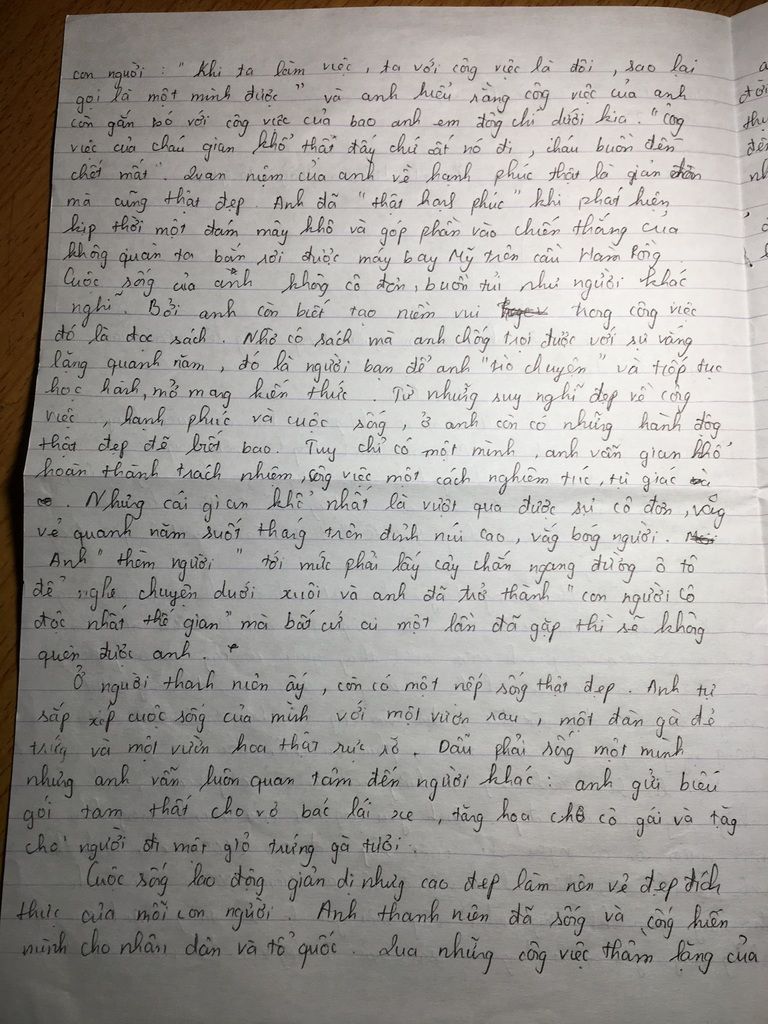 con người : " Khi ta làm việc , ta với công việc là đôi , sao lại
gọi là một mình được " và anh hiểu rằng công việc của anh
còn gắn bó với công việc của bao anh em đồng chí dưới kia . " Công
việc của cháu gian khổ thật đấy chứ cất nó đi , cháu buồn đến
chết mất " . Quan niệm của anh về hạnh phúc thật là giản đơn
mà cũng thật đẹp . Anh đã " thật hạnh phúc " khi phát hiện
kịp thời một đám mây khô và góp phần vào chiến thắng của
không quân ta bắn rơi được máy bay Mỹ trên cầu Hàm Rồng .
Cuộc sống của anh không cô đơn , buồn tủi như người khác
nghĩ . Bởi anh còn biết tạo niềm vui trong công việc
đó là đọc sách . Nhờ có sách mà anh chống trọi được với sự vắng
lặng quanh năm , đó là người bạn để anh " trò chuyện " và tiếp tục
học hành , mở mang kiến thức . Từ những suy nghĩ đẹp về công
việc , hạnh phúc và cuộc sống , ở anh còn có những hành động
thật đẹp đẽ biết bao . Tuy chỉ có một mình , anh vẫn gian khổ
hoàn thành trách nhiệm , công việc một cách nghiêm túc , tự giác
. Nhưng cái gian khổ nhất là vượt qua được sự cô đơn , vắng
vẻ quanh năm suốt tháng trên đỉnh núi cao , vắng bóng người .
Anh " thèm người " tới mức phải lấy cây chắn ngang đường ô tô
để nghe chuyện dưới xuôi và anh đã trở thành " con người cô
độc nhất thế gian " mà bất cứ ai một lần đã gặp thì sẽ không
quên được anh .
Ở người thanh niên ấy , còn có một nếp sống thật đẹp . Anh tự
sắp xếp cuộc sống của mình với một vườn rau , một đàn gà đẻ
trứng và một vườn hoa thật rực rỡ . Dẫu phải sống một mình
nhưng anh vẫn luôn quan tâm đến người khác : anh gửi biếu
gói tam thất cho vợ bác lái xe , tặng hoa cho cô gái và tặng
cho người đi một giỏ trứng gà tươi .
Cuộc sống lao động giản dị nhưng cao đẹp làm nên vẻ đẹp đích
thực của mỗi con người . Anh thanh niên đã sống và cống hiến
mình cho nhân dân và tổ quốc . Qua những công việc thầm lặng của